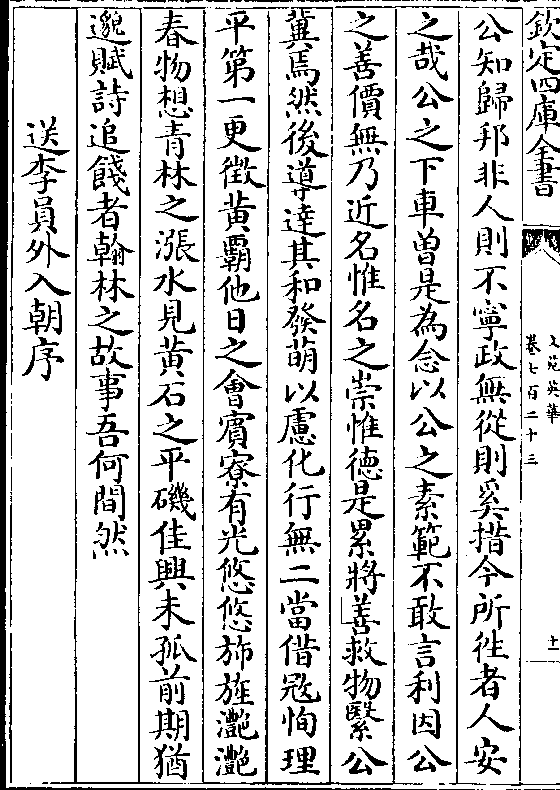 欽定四庫全書
文苑英華
卷七百二十三
十一
公知歸邦非人則不寧政無從則奚措今所徃者人安
之哉公之下車曽是為念以公之素範不敢言利因公
之善價無乃近名惟名之崇惟德是累將善救物繄公
冀焉然後導達其和發萌以慮化行無二當借㓂恂理
平第一更徴黄霸他日之會賓寮有光悠悠斾旌灔灔
春物想青林之漲水見黄石之平磯佳興未孤前期猶
邈賦詩追餞者翰林之故事吾何間然
送李員外入朝序